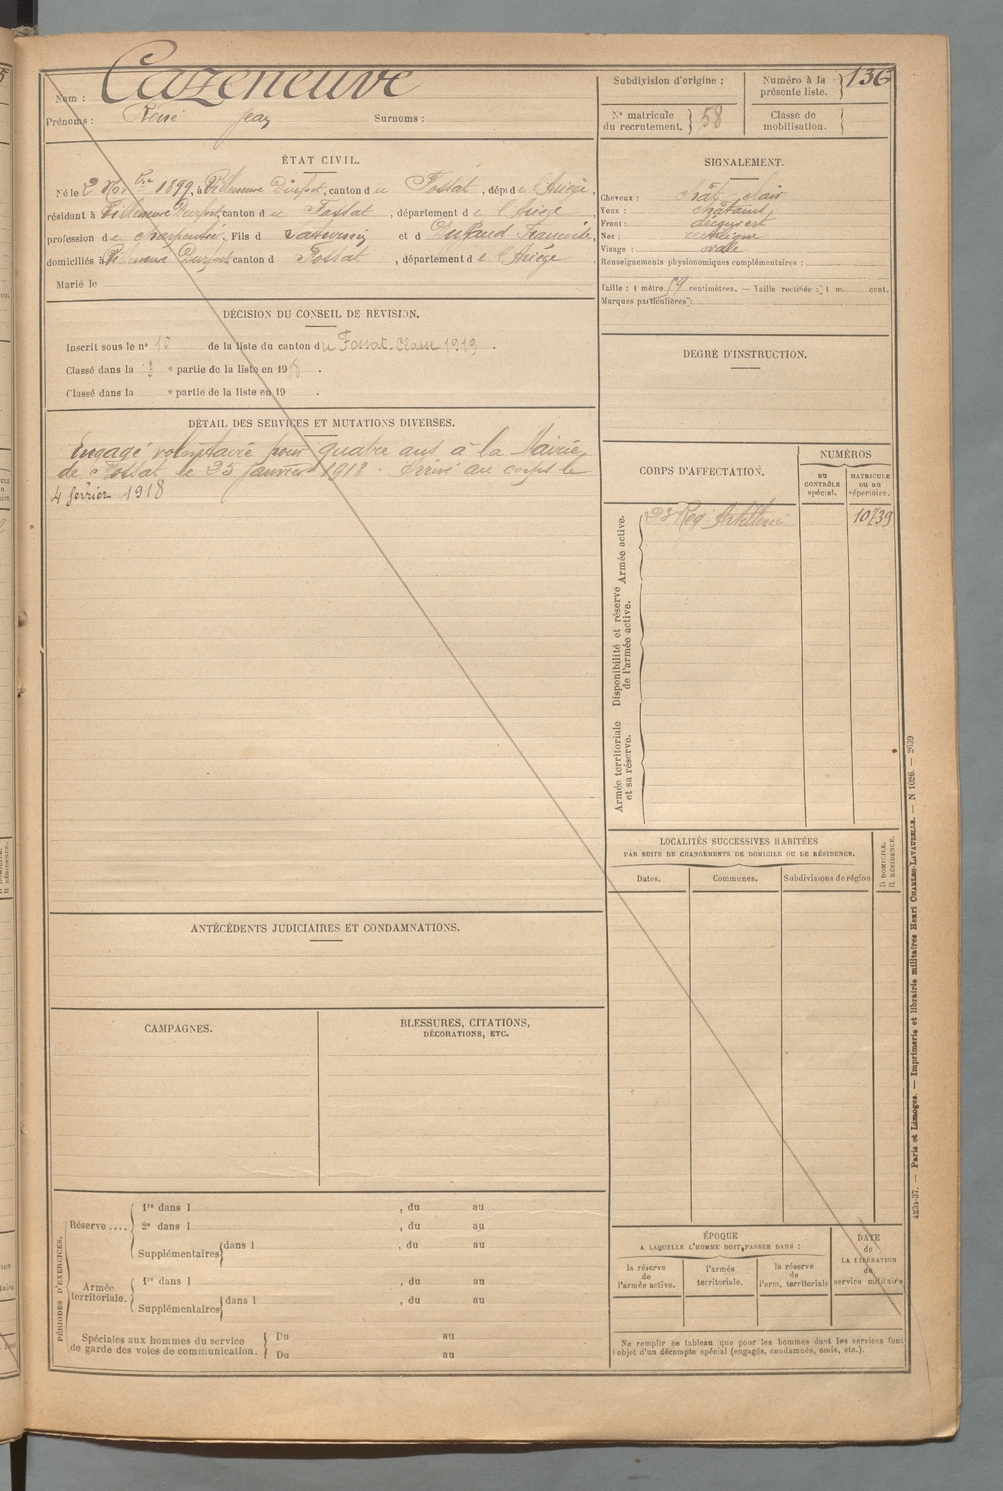 Nom : Cazeneuve
Prénoms : René Jean Surnoms :
Subdivision d'origine :
Numéro à la présente liste. } 136
N° matricule du recrutement. } 58
Classe de mobilisation. }
ÉTAT CIVIL.
Né le 2 Nov bre 1899, à Villeneuve Durfort, canton d u Fossat, dép¹ d e l'Ariège,
résidant à Villeneuve Durfort, canton d u Fossat, département d e l'Ariège,
profession d e charpentier, Fils d et d
domiciliés à Villeneuve Durfort, canton d Fossat, département d e l'Ariège.
Marié le
SIGNALEMENT.
Cheveux : chât-clair
Yeux : châtains
Front : découvert
Nez : rectiligne
Visage : ovale
Renseignements physionomiques complémentaires :
Taille : 1 mètre 59 centimètres. — Taille rectifiée : 1 m. cent.
Marques particulières :
DÉCISION DU CONSEIL DE REVISION.
Inscrit sous le n° 10 de la liste du canton d u Fossat. Classe 1919.
Classé dans la e partie de la liste en 1918.
Classé dans la e partie de la liste en 19 .
DEGRÉ D'INSTRUCTION.
DÉTAIL DES SERVICES ET MUTATIONS DIVERSES.
Engagé volontaire pour quatre ans à la Mairie
de Fossat le 25 janvier 1918. Arrivé au corps le
4 février 1918
CORPS D'AFFECTATION.
NUMÉROS
AU CONTRÔLE spécial.
MATRICULE ou au répertoire.
Armée active.
23 Rég Artillerie 10739
Disponibilité et réserve de l'armée active.
Armée territoriale et sa réserve.
LOCALITÉS SUCCESSIVES HABITÉES
PAR SUITE DE CHANGEMENTS DE DOMICILE OU DE RÉSIDENCE.
Dates. Communes. Subdivisions de région
D DOMICILE.
R RÉSIDENCE.
ANTÉCÉDENTS JUDICIAIRES ET CONDAMNATIONS.
CAMPAGNES.
BLESSURES, CITATIONS,
DÉCORATIONS, ETC.
PÉRIODES D'EXERCICES.
Réserve .... { 1re dans l , du au
2e dans l , du au
Supplémentaires { dans l , du au
Armée territoriale. { 1re dans l , du au
Supplémentaires { dans l , du au
Spéciales aux hommes du service
de garde des voies de communication. { Du au
Du au
ÉPOQUE
A LAQUELLE L'HOMME DOIT PASSER DANS :
la réserve de l'armée active.
l'armée territoriale.
la réserve de l'arm. territoriale
DATE de LA LIBÉRATION du service militaire
Ne remplir ce tableau que pour les hommes dont les services font
l'objet d'un décompte spécial (engagés, condamnés, omis, etc.).
4234-37. — Paris et Limoges. — Imprimerie et librairie militaires Henri CHARLES-LAVAUZELLE. — N 1026. — 2639